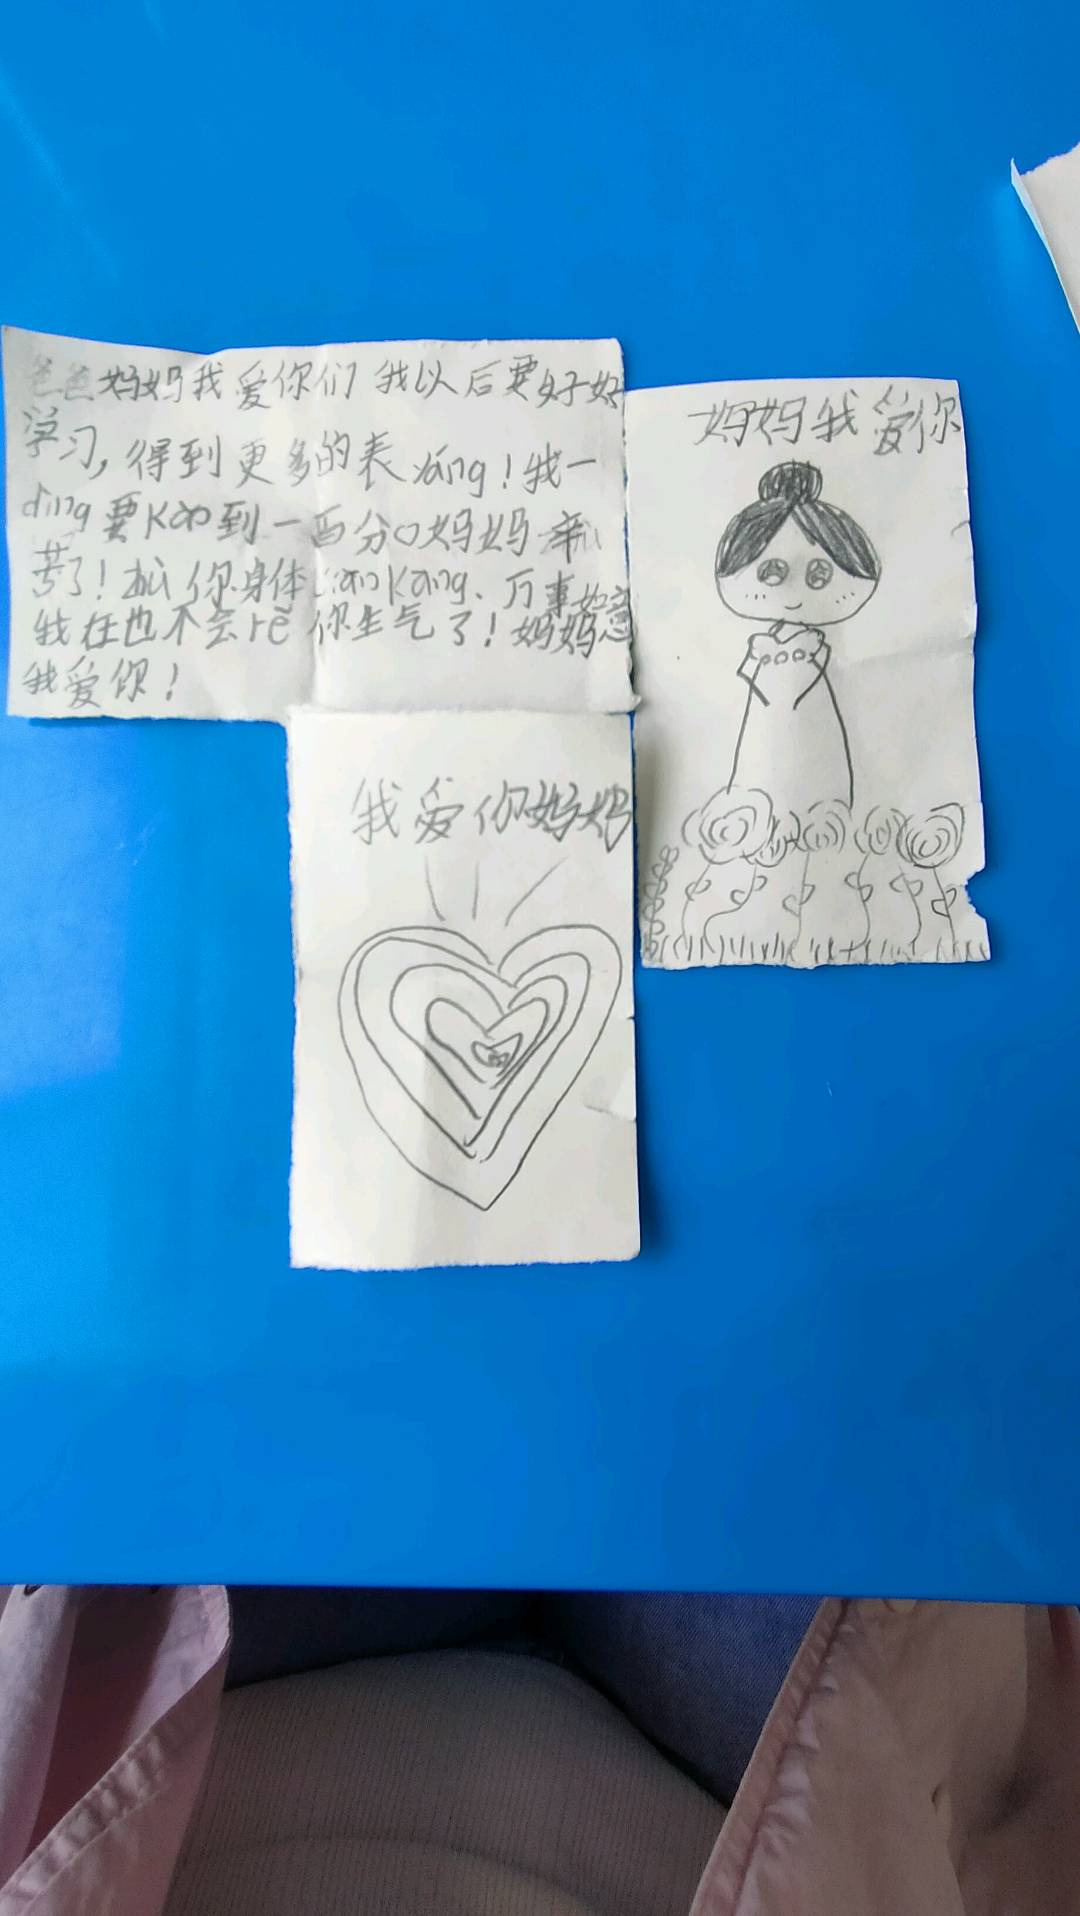 爸爸妈妈我爱你们 我以后要好好
学习,得到更多的表yáng!我一
dìng要kǎo到一百分。妈妈辛
苦了!祝你身体jiànkāng、万事如意
我在也不会rě你生气了!妈妈
我爱你!
妈妈我爱你
我爱你妈妈